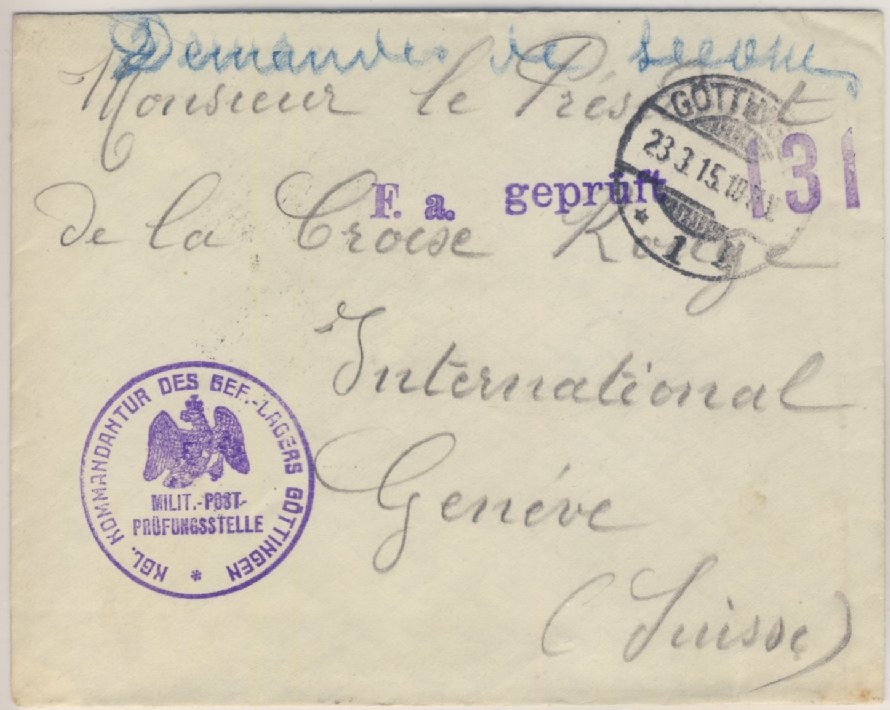 Demandes de secours
Monsieur le Président
GÖTTINGEN
23.3.15.
* 1
131
F. a. geprüft.
de la Croise Rouge
International
Genéve
(Suisse)
KGL. KOMMANDANTUR DES GEF.-LAGERS GÖTTINGEN *
MILIT.-POST-
PRÜFUNGSSTELLE